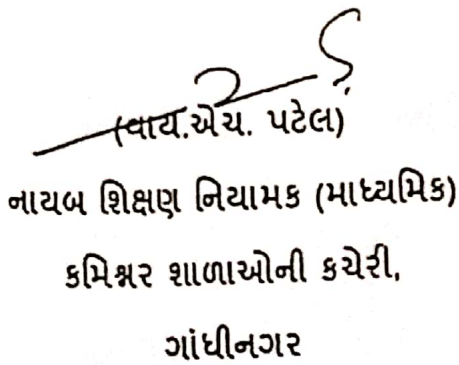 (વાય.એચ. પટેલ)
નાયબ શિક્ષણ નિયામક (માધ્યમિક)
કમિશ્નર શાળાઓની કચેરી,
ગાંધીનગર